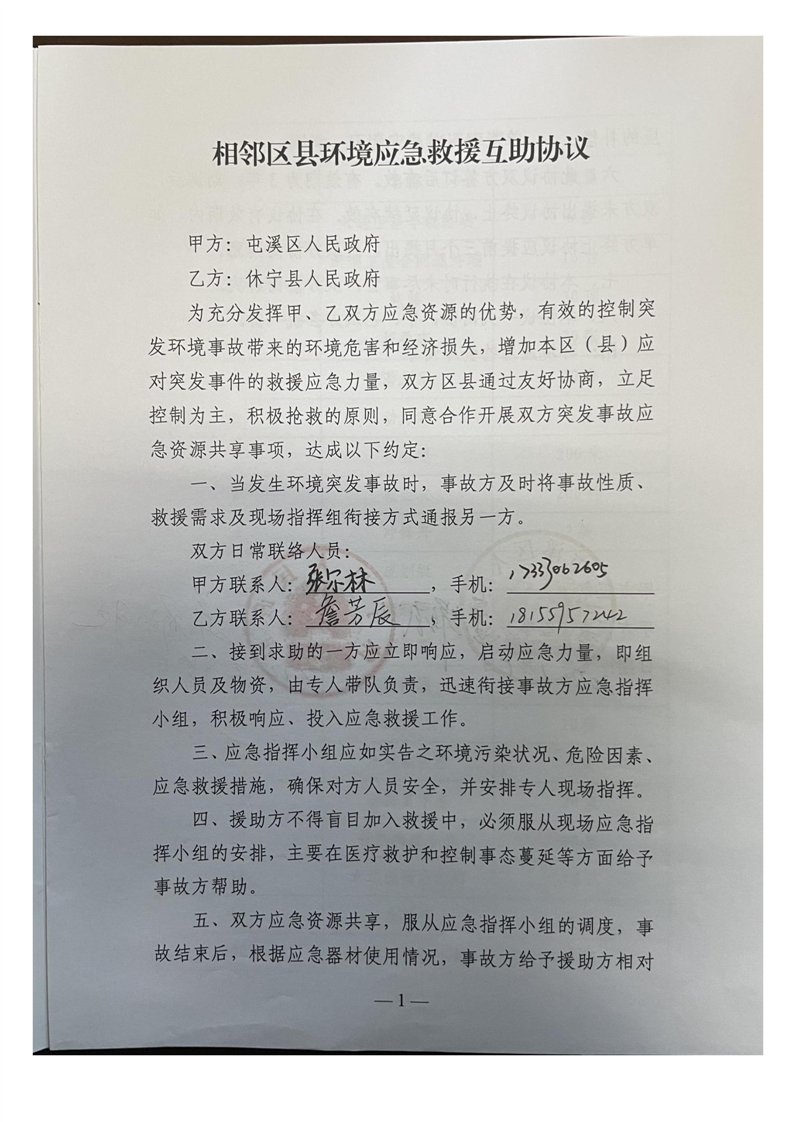 相邻区县环境应急救援互助协议
甲方：屯溪区人民政府
乙方：休宁县人民政府
为充分发挥甲、乙双方应急资源的优势，有效的控制突
发环境事故带来的环境危害和经济损失，增加本区（县）应
对突发事件的救援应急力量，双方区县通过友好协商，立足
控制为主，积极抢救的原则，同意合作开展双方突发事故应
急资源共享事项，达成以下约定：
一、当发生环境突发事故时，事故方及时将事故性质、
救援需求及现场指挥组衔接方式通报另一方。
双方日常联络人员：
甲方联系人：张尔林，手机：17333062605
乙方联系人：詹芳辰，手机：18155957242
二、接到求助的一方应立即响应，启动应急力量，即组
织人员及物资，由专人带队负责，迅速衔接事故方应急指挥
小组，积极响应、投入应急救援工作。
三、应急指挥小组应如实告之环境污染状况、危险因素、
应急救援措施，确保对方人员安全，并安排专人现场指挥。
四、援助方不得盲目加入救援中，必须服从现场应急指
挥小组的安排，主要在医疗救护和控制事态蔓延等方面给予
事故方帮助。
五、双方应急资源共享，服从应急指挥小组的调度，事
故结束后，根据应急器材使用情况，事故方给予援助方相对
— 1 —